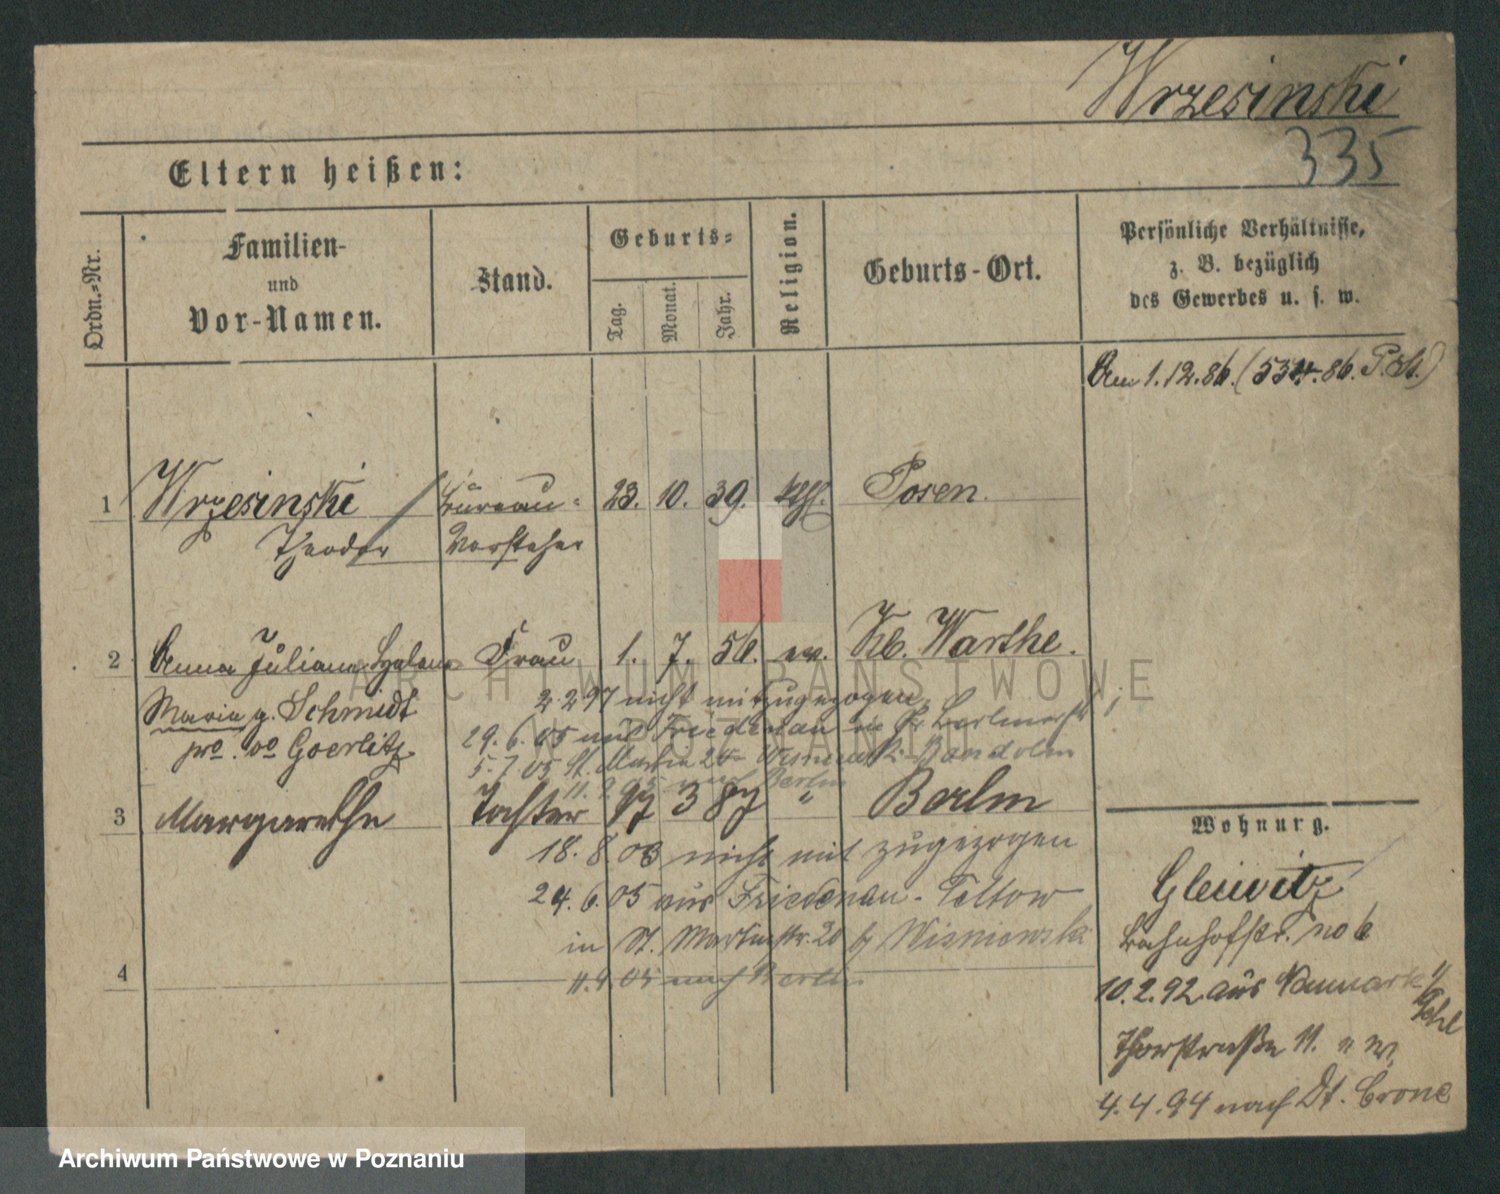 Wrzesinski
335
Eltern heißen:
Ordn.-Nr.
Familien-
und
Vor-Namen.
Stand.
Geburts-
Tag.
Monat.
Jahr.
Religion.
Geburts-Ort.
Persönliche Verhältnisse,
z. B. bezüglich
des Gewerbes u. s. w.
Am 1.12.86. (534.86. P. )
1 Wrzesinski Büreau- 23. 10. 39. Posen.
Theodor Vorsteher
2 Anna Juliana Frau 1. 7. 56. ev. Kb. Warthe.
Maria g. Schmidt
Goerlitz
2 2 97 nicht mitzugezogen
29. 6. 05 aus Friedenau in
5. 7 05 St. Martin
nach Berlin
3 Margarethe Tochter 17 3 87 " Berlin
18. 8. 03 nicht mit zugezogen
24. 6. 05 aus Friedenau - Teltow
in St. Martinstr. 20 Wisniewski
4
11. 9 05 nach Berlin
Wohnung.
Gleiwitz
Bahnhofstr. no 6
10. 2. 92 aus Neumark
Thorstraße 11.
4. 4. 94 nach Dt. Crone
ARCHIWUM PAŃSTWOWE
W POZNANIU
Archiwum Państwowe w Poznaniu